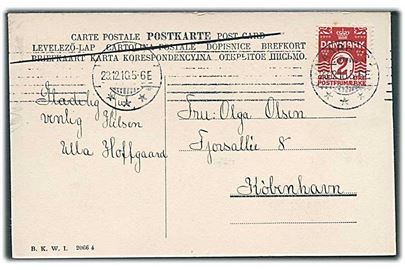 CARTE POSTALE POSTKARTE POST CARD
LEVELEZŐ-LAP CARTOLINA POSTALE DOPISNICE BREFKORT
BRIEFKAART KARTA KORESPONDENCYJNA ОТКРЫТОЕ ПИСЬМО.
DANMARK
2
POSTFRIMÆRKE
29.12.10.5-6E
Glædelig Jul
venlig Hilsen
Ulla Hoffgaard
Fru: Olga Olsen
8
København
B. K. W. I. 2066 4